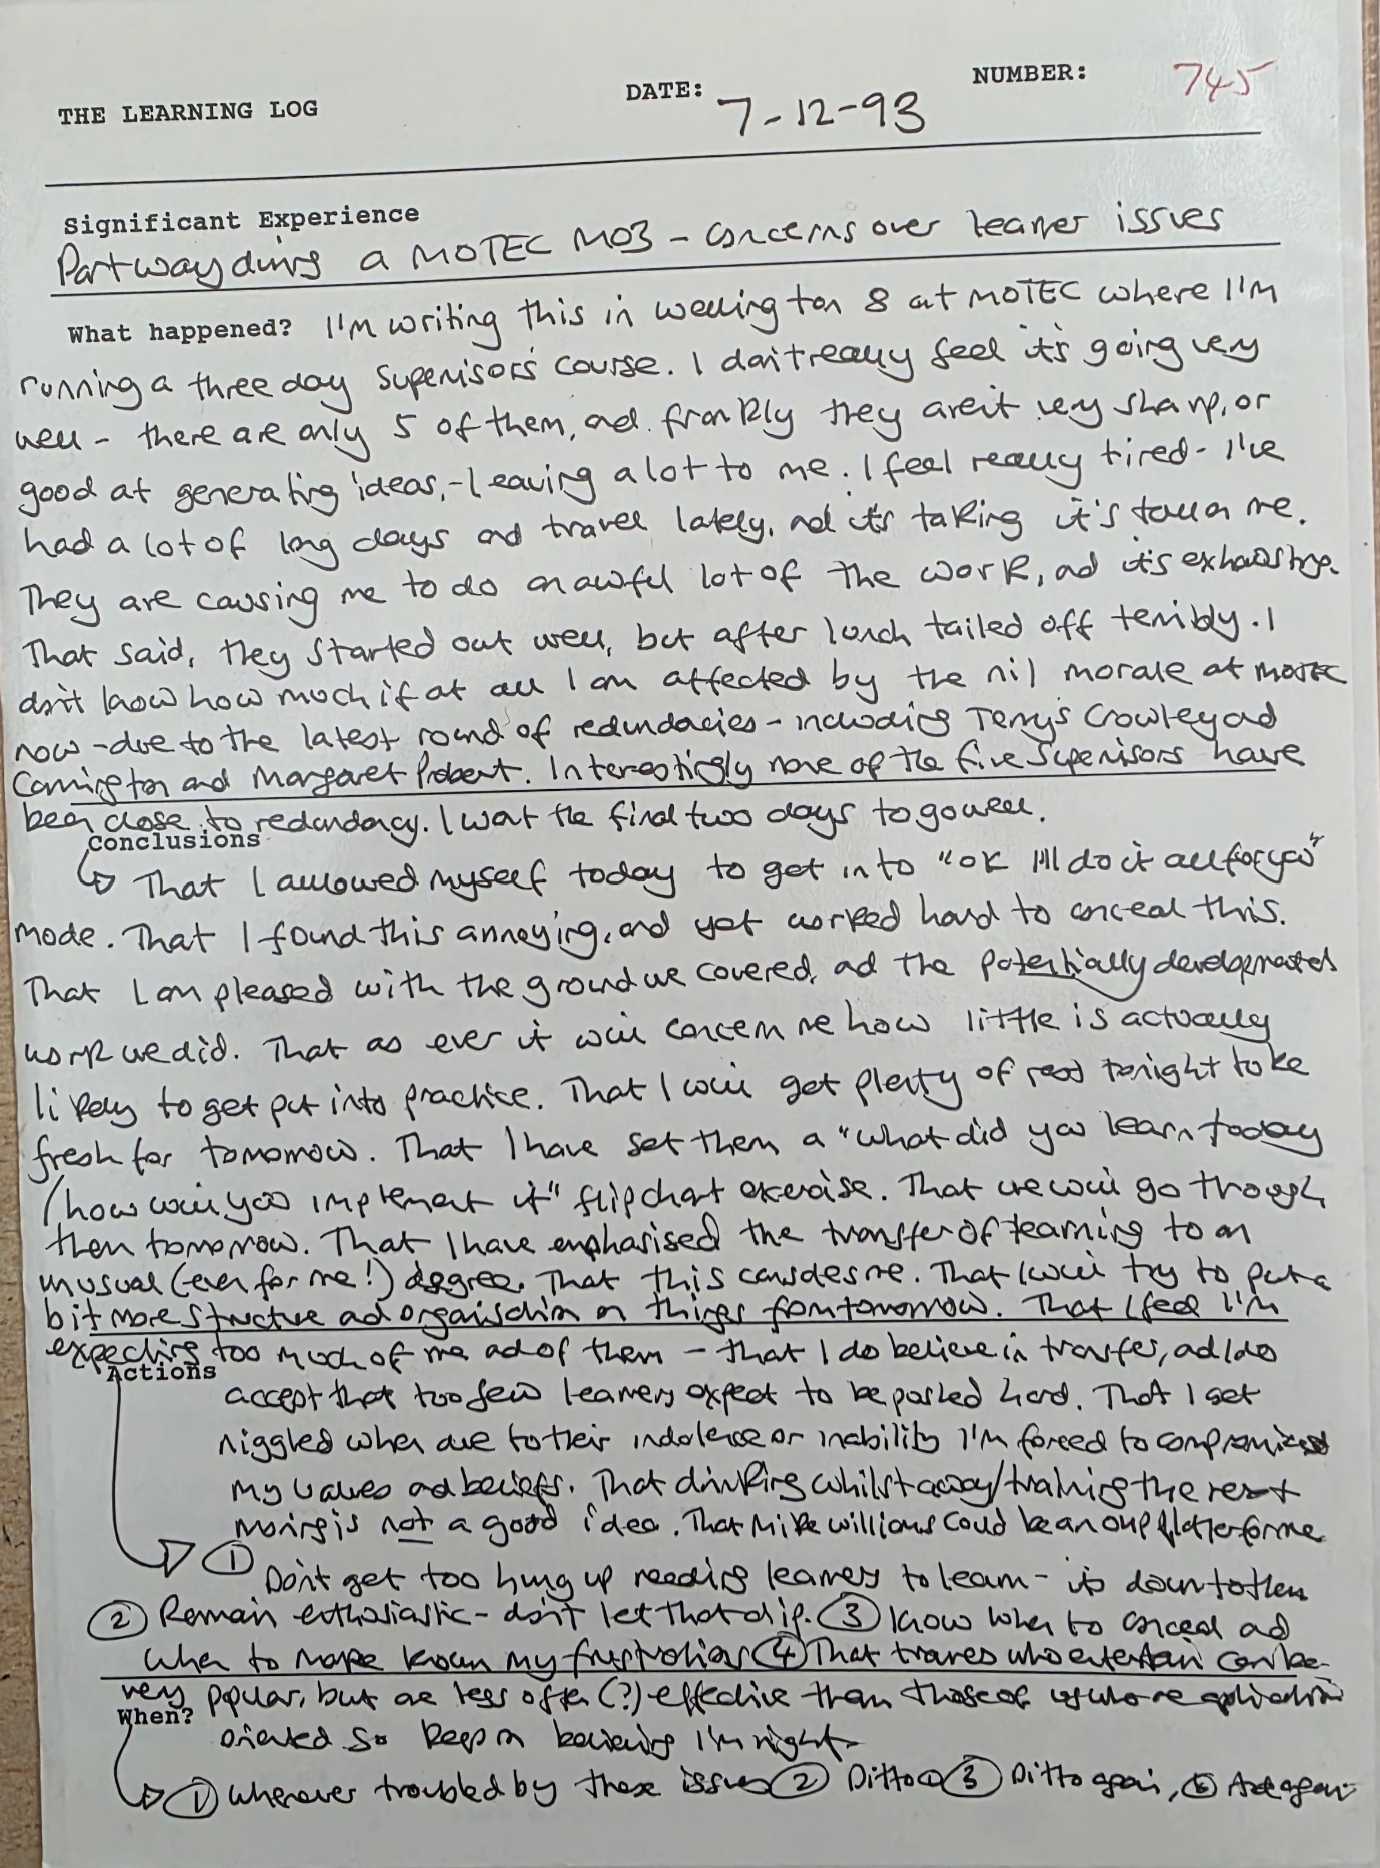 THE LEARNING LOG DATE: 7-12-93 NUMBER: 745
Significant Experience
Partway during a MOTEC M03 - concerns over learner issues
What happened? I'm writing this in Wellington 8 at MOTEC where I'm
running a three day supervisors' course. I don't really feel it's going very
well - there are only 5 of them, and frankly they aren't very sharp, or
good at generating ideas, - leaving a lot to me. I feel really tired - I've
had a lot of long days and travel lately, and it's taking it's toll on me.
They are causing me to do an awful lot of the work, and it's exhausting.
That said, they started out well, but after lunch tailed off terribly. I
don't know how much if at all I am affected by the nil morale at MOTEC
now - due to the latest round of redundacies - including Terry's Crowley and
and Margaret Probert. Interestingly none of the five supervisors have
been close to redundancy. I want the final two days to go well.
Conclusions
That I allowed myself today to get into "OK I'll do it all for you"
mode. That I found this annoying, and yet worked hard to conceal this.
That I am pleased with the ground we covered, and the potentially developmental
work we did. That as ever it will concern me how little is actually
likely to get put into practice. That I will get plenty of rest tonight to be
fresh for tomorrow. That I have set them a "what did you learn today
/how will you implement it" flipchart exercise. That we will go through
them tomorrow. That I have emphasised the transfer of learning to an
unusual (even for me!) degree. That this  That I will try to put a
bit more structure and organisation on things from tomorrow. That I feel I'm
expecting too much of me and of them - that I do believe in transfer, and I do
Actions
accept that too few learners expect to be pushed hard. That I get
niggled when due to their indolence or inability I'm forced to compromise
my values and beliefs. That drinking whilst away/training the next
morning is not a good idea. That Mike Williams could be an for me
① Don't get too hung up needing learners to learn - it's down to them
② Remain enthusiastic - don't let that dip. ③ Know when to conceal and
when to make known my frustrations ④ That trainers who entertain can be
very popular, but are less often (?) effective than those of us who are application
When?
oriented so keep on believing I'm right
① Whenever troubled by these issues ② Ditto ③ Ditto again, And again